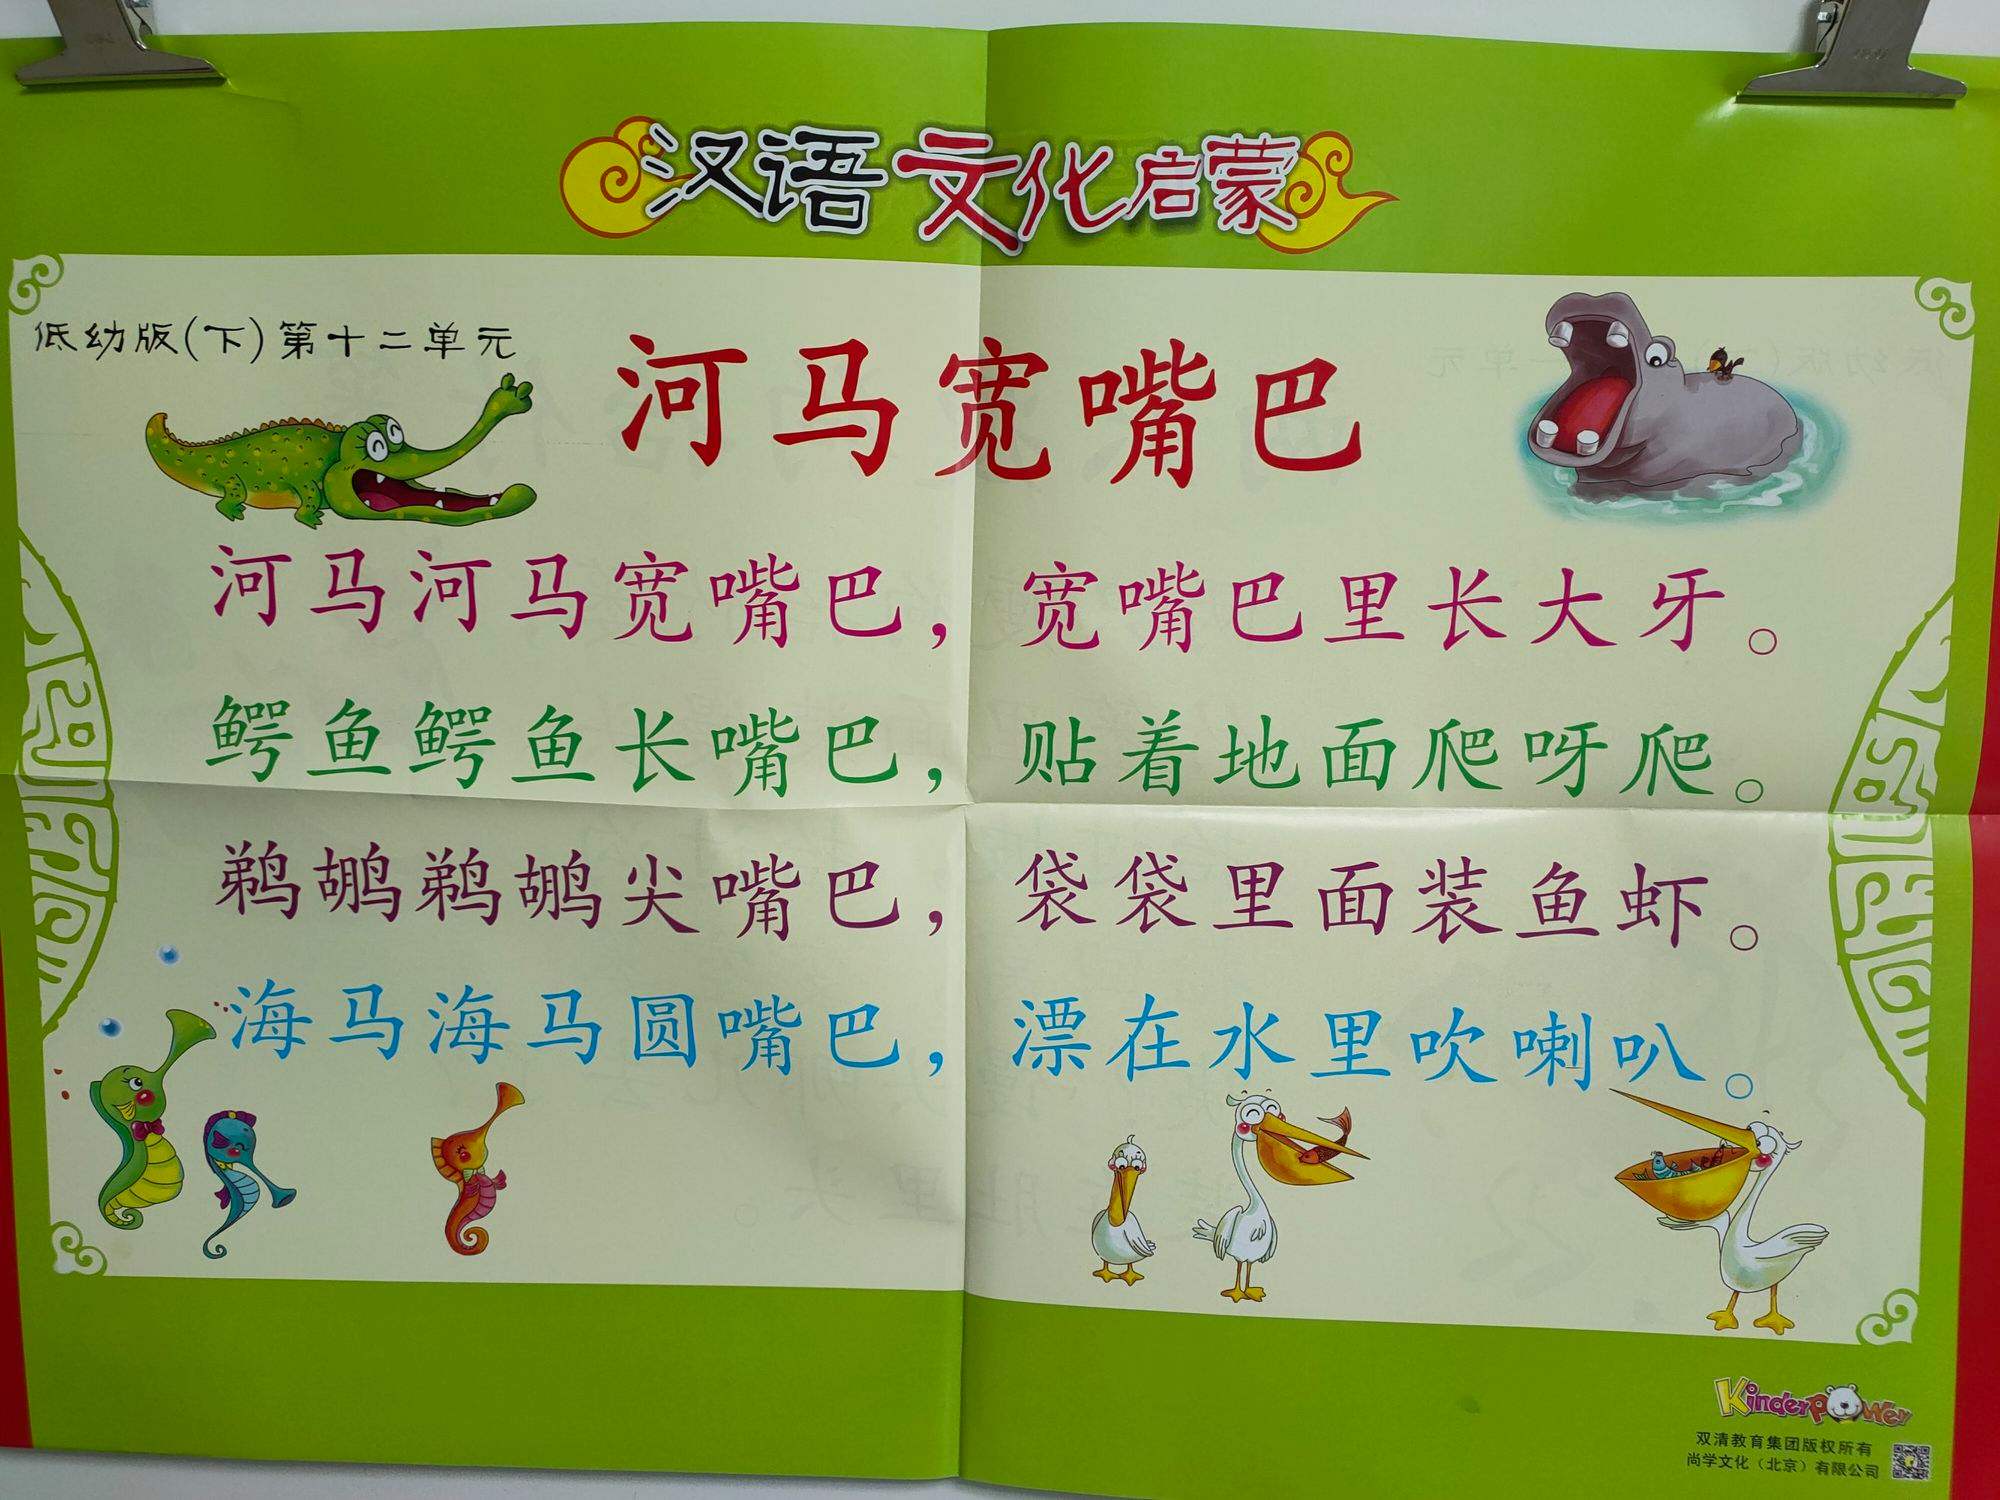 汉语文化启蒙
低幼版(下)第十二单元
河马宽嘴巴
河马河马宽嘴巴，宽嘴巴里长大牙。
鳄鱼鳄鱼长嘴巴，贴着地面爬呀爬。
鹈鹕鹈鹕尖嘴巴，袋袋里面装鱼虾。
海马海马圆嘴巴，漂在水里吹喇叭。
KinderPower
双清教育集团版权所有
尚学文化（北京）有限公司